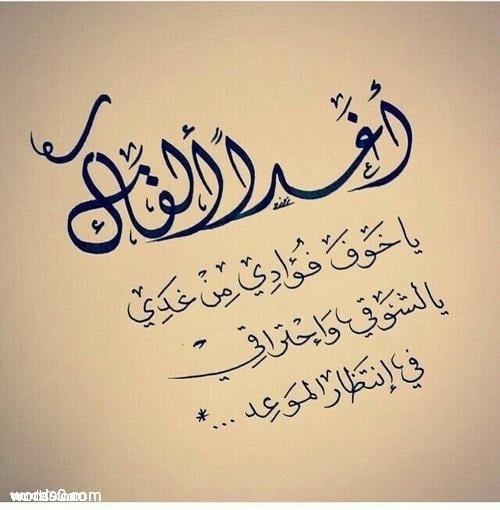 أغداً ألقاك
يا خَوفَ فُؤادِي مِنْ غَدِي
يالشَوقي وَإحتراقي
في إنتظار المَوعِد ...*